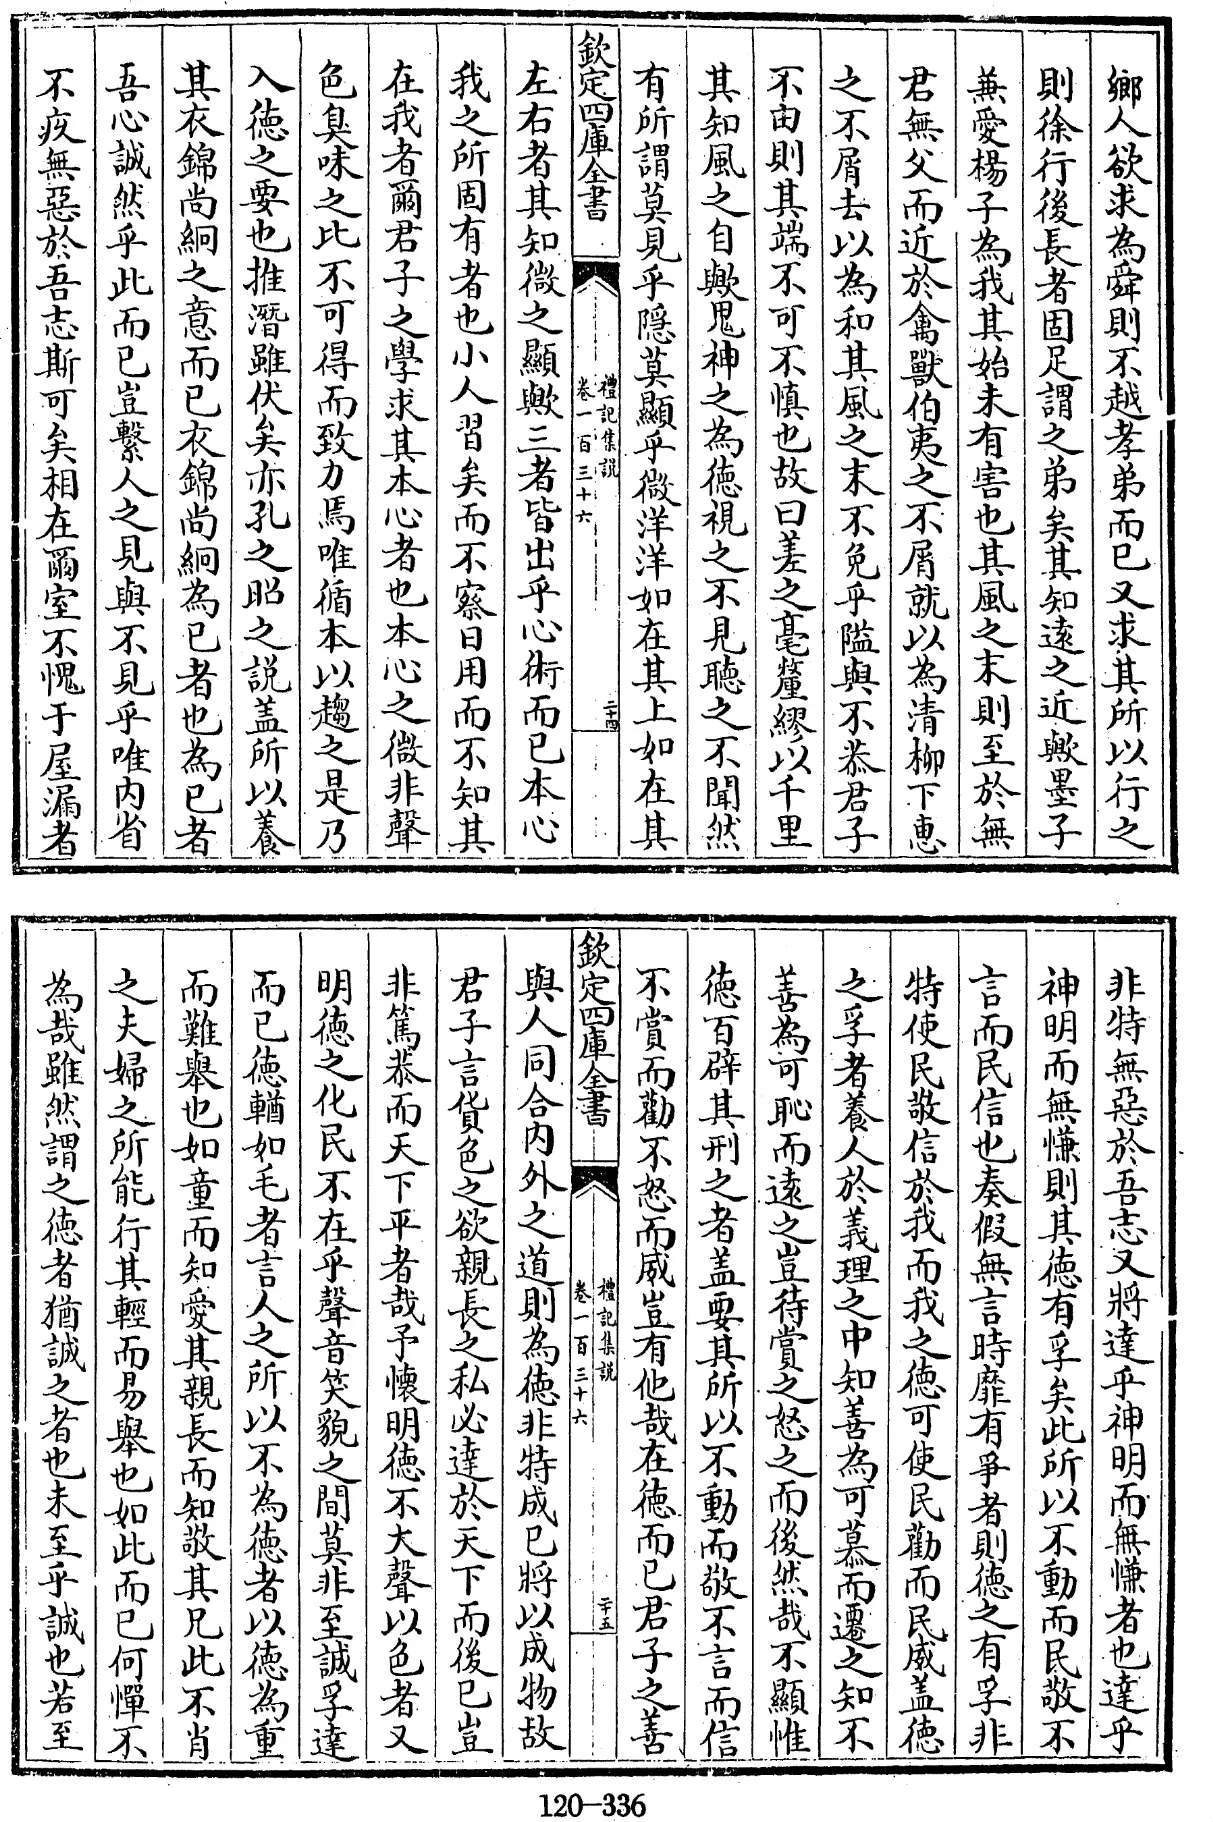 鄉人欲求為舜則不越孝弟而已又求其所以行之
則徐行後長者固足謂之弟矣其知遠之近歟墨子
兼愛楊子為我其始未有害也其風之末則至於無
君無父而近於禽獸伯夷之不屑就以為清柳下惠
之不屑去以為和其風之末不免乎隘與不恭君子
不由則其端不可不慎也故曰差之毫釐繆以千里
其知風之自歟鬼神之為德視之不見聽之不聞然
有所謂莫見乎隱莫顯乎微洋洋如在其上如在其
欽定四庫全書
禮記集説
卷一百三十六
二十四
左右者其知微之顯歟三者皆出乎心術而已本心
我之所固有者也小人習矣而不察日用而不知其
在我者爾君子之學求其本心者也本心之微非聲
色臭味之比不可得而致力焉唯循本以趨之是乃
入德之要也推潛雖伏矣亦孔之昭之説盖所以養
其衣錦尚絅之意而已衣錦尚絅為已者也為已者
吾心誠然乎此而已豈繫人之見與不見乎唯内省
不疚無惡於吾志斯可矣相在爾室不愧于屋漏者
非特無惡於吾志又將達乎神明而無慊者也達乎
神明而無慊則其德有孚矣此所以不動而民敬不
言而民信也奏假無言時靡有爭者則德之有孚非
特使民敬信於我而我之德可使民勸而民威盖德
之孚者養人於義理之中知善為可慕而遷之知不
善為可恥而遠之豈待賞之怒之而後然哉不顯惟
德百辟其刑之者盖要其所以不動而敬不言而信
不賞而勸不怒而威豈有他哉在德而已君子之善
欽定四庫全書
禮記集説
卷一百三十六
二十五
與人同合内外之道則為德非特成已將以成物故
君子言貨色之欲親長之私必達於天下而後已豈
非篤恭而天下平者哉予懷明德不大聲以色者又
明德之化民不在乎聲音笑貌之間莫非至誠孚達
而已德輶如毛者言人之所以不為德者以德為重
而難舉也如童而知愛其親長而知敬其兄此不肖
之夫婦之所能行其輕而易舉也如此而已何憚不
為哉雖然謂之德者猶誠之者也未至乎誠也若至
120-336